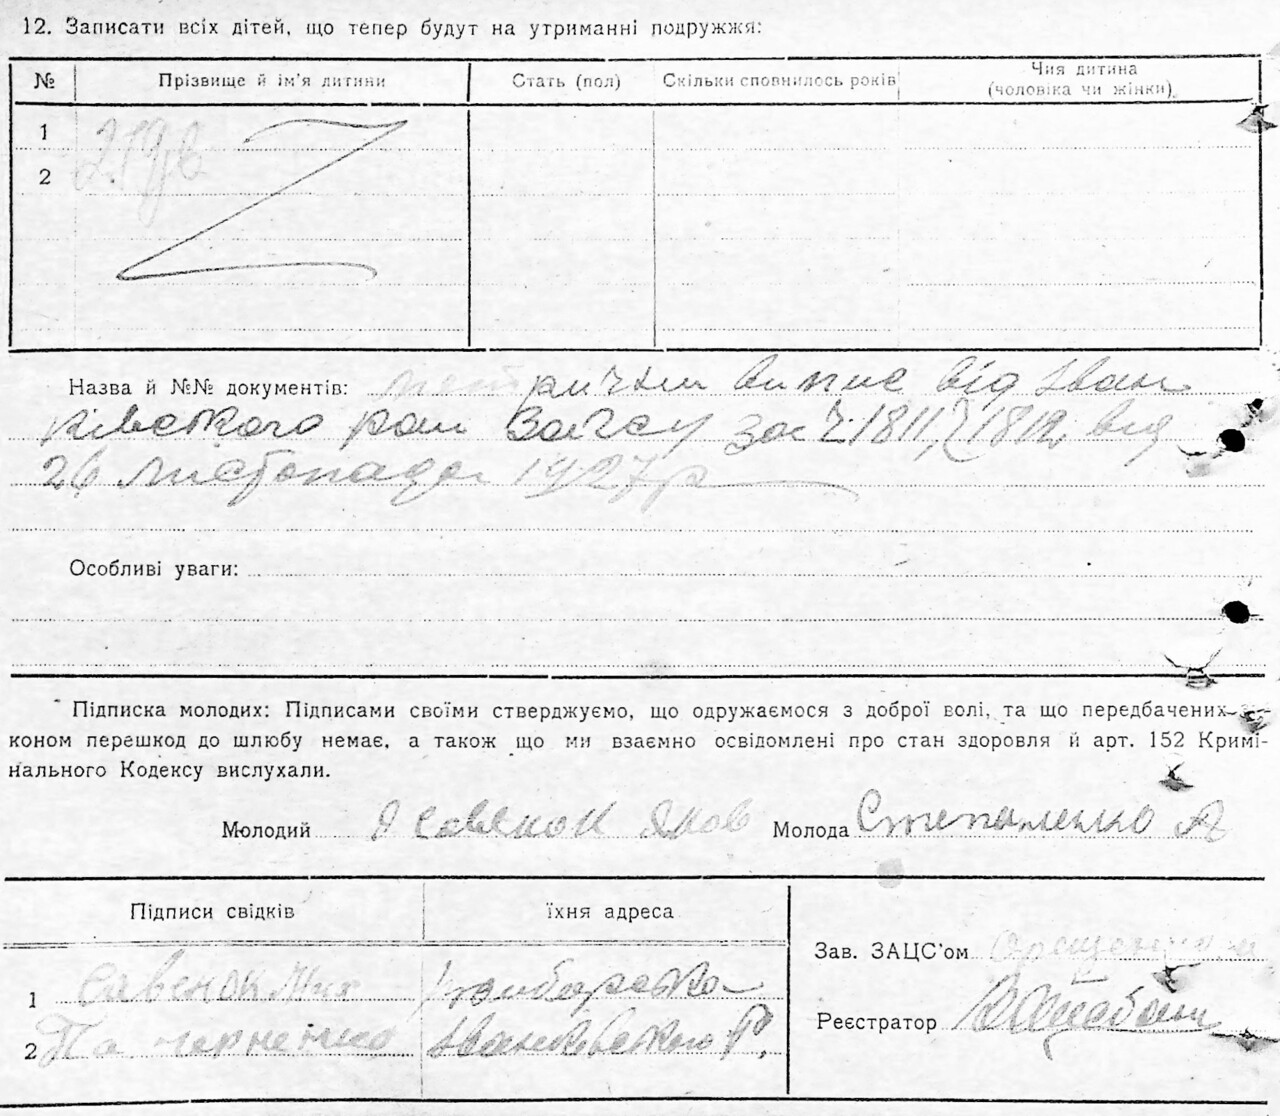 12. Записати всіх дітей, що тепер будут на утриманні подружжя:
№ Прізвище й ім'я дитини Стать (пол) Скільки сповнилось років Чия дитина
(чоловіка чи жінки)
1
2
Назва й №№ документів: метричний випис від Іван
ківського рай Загсу за ч. 1811, 1812 від
26 листопада 1927 р
Особливі уваги:
Підписка молодих: Підписами своїми стверджуємо, що одружаємося з доброї волі, та що передбачених
коном перешкод до шлюбу немає, а також що ми взаємно освідомлені про стан здоровля й арт. 152 Кримі-
нального Кодексу вислухали.
Молодий Савенок Яков Молода Степаненко А
Підписи свідків їхня адреса
Зав. ЗАЦС'ом
1 Савенок Мих
Реєстратор
2 Іванківського р.